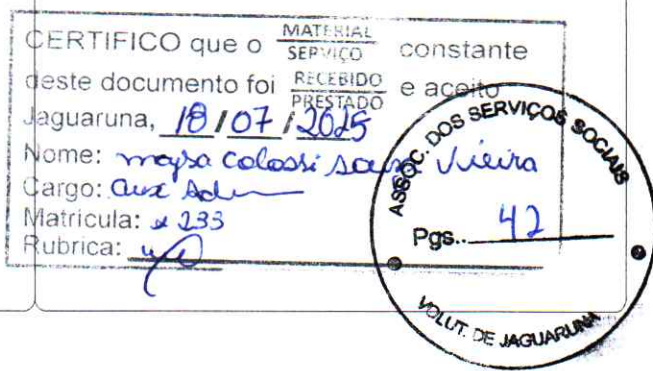 CERTIFICO que o MATERIAL SERVIÇO constante
deste documento foi RECEBIDO PRESTADO e aceito
Jaguaruna, 18 / 07 / 2025
Nome: maysa colossi souza Vieira
Cargo: aux Adm
Matricula: 233
Rubrica:
ASSOC. DOS SERVIÇOS SOCIAIS
Pgs.. 42
VOLUT. DE JAGUARUNA